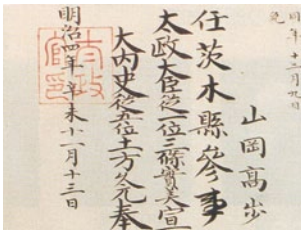 同年十二月九日
免
山岡高歩
任茨木縣參事
太政大臣従一位三條實美宣
大内史従五位土方久元奉
明治四年辛未十一月十三日
太政官印